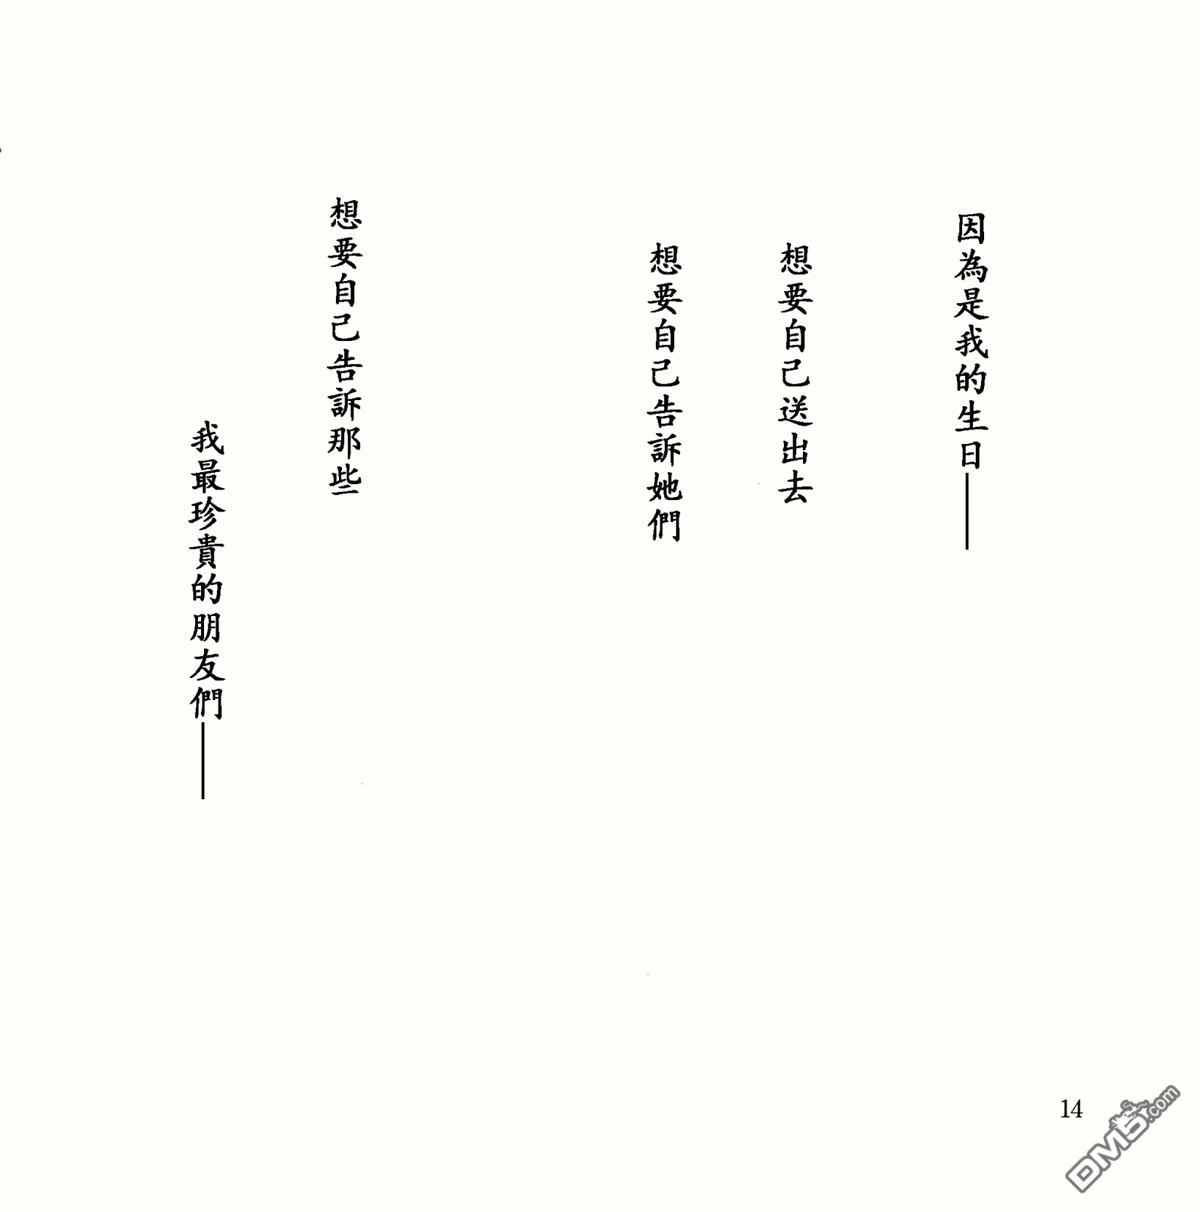 因為是我的生日——
想要自己送出去
想要自己告訴她們
想要自己告訴那些
我最珍貴的朋友們——
14
DM5.com